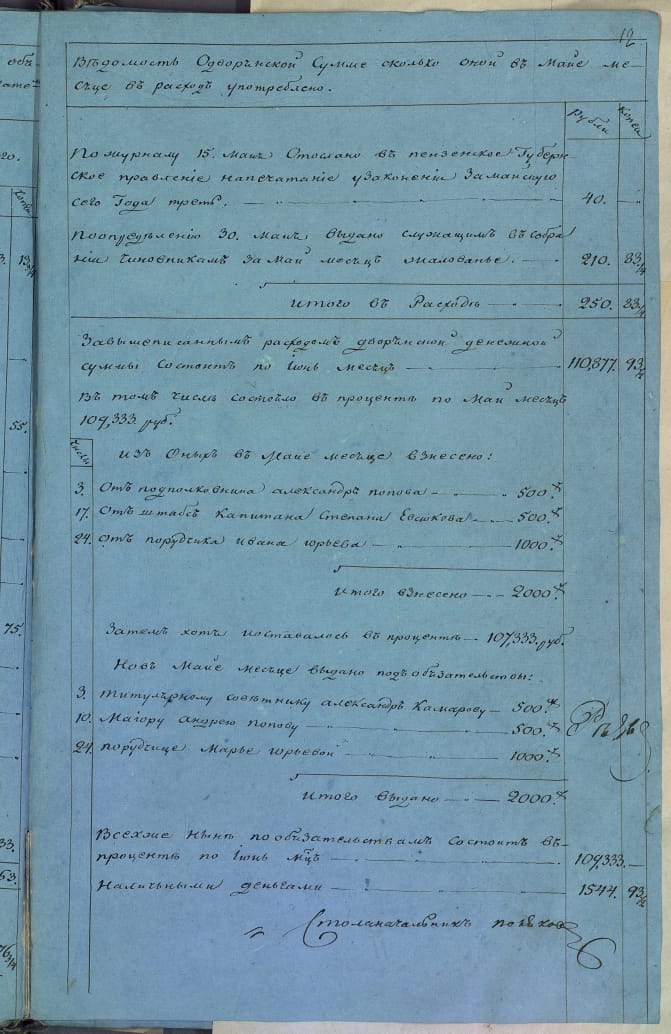 12
Вѣдомость О дворянской Сумме сколько оной въ Маие ме-
сяце въ расходъ употреблено.
Рубли Копеи
По журналу 15. Маия Отослано въ пензенское Губерн-
ское правленіе на печатаніе узаконеніи За майскую
сего Года треть. 40. —
По опредѣленію 30. Маия выдано служащимъ въ Собра-
ніи Чиновникамъ За Май месяцъ жалованье. 210. 83 1/4
Итого въ Расходѣ 250. 83 1/4
За вышеписаннымъ расходомъ дворянской денежной
суммы Состоитъ по Іюнь месяцъ 110,877. 93
Въ томъ числѣ состояло въ процентѣ по Май месяцъ
109,333 руб.
Числы
Изъ Оныхъ въ Маие месяце взнесено:
3. Отъ подполковника александра попова 500.
17. Отъ штабсъ Капитана Степана 500.
24. отъ порутчика ивана юрьева 1000.
Итого взнесено 2000.
За темъ хотя и оставалось въ процентѣ 107,333. руб.
Но въ Маие месяце выдано подъ обязательствы:
3. титулярному советнику александру Камарову 500.
10. Маіору андрею попову 500.
24. порутчице Марье юрьевой 1000.
Итого выдано 2000.
Всехже нынѣ по обязательствамъ состоитъ въ
процентѣ по Іюнь М-цъ 109,333. —
Наличными деньгами 1544. 93
Столаначальникъ
55.
75.
33.
63.